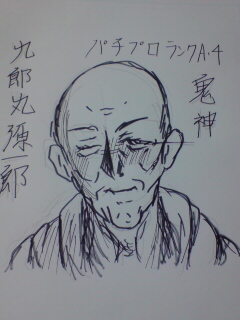 パチプロランクA・4
鬼神
九郎丸源一郎